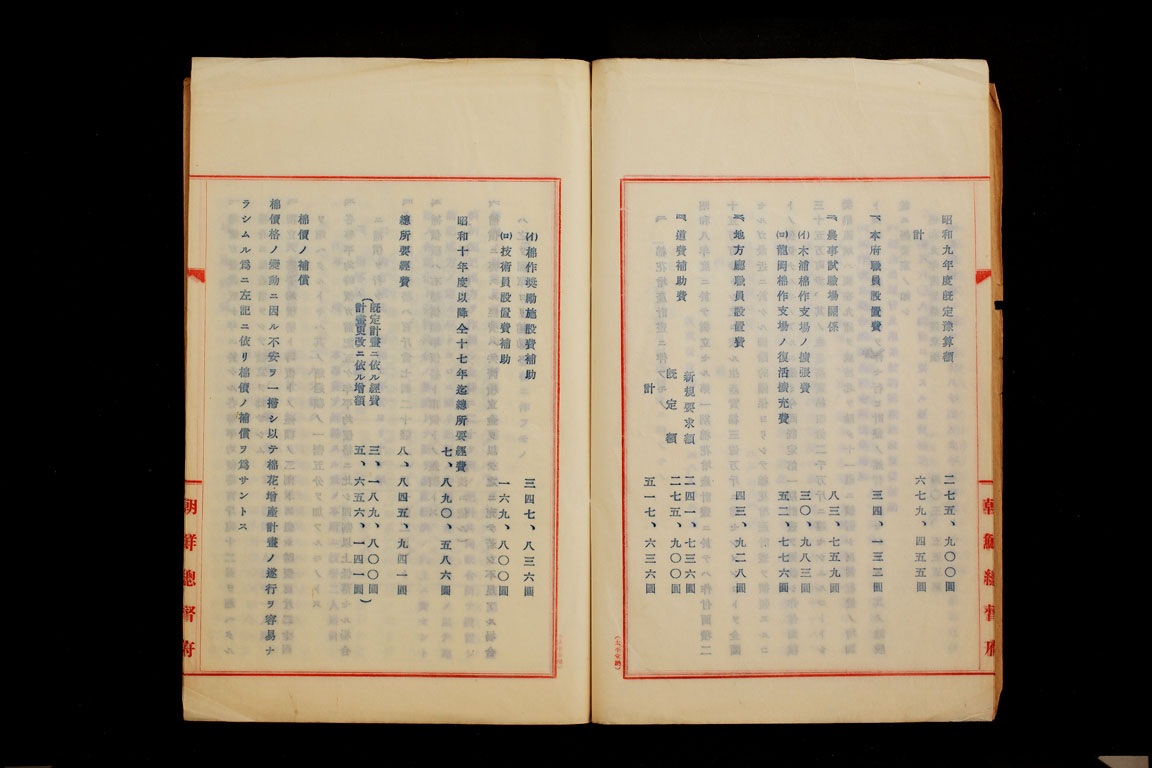 昭和九年度既定豫算額　二七五、九〇〇圓
計　六七九、四五五圓
本府職員設置費　三四、一三二圓
農事試驗場關係　八三、七五九圓
(イ)木浦棉作支場ノ擴張費　三〇、九八三圓
(ロ)龍岡棉作支場ノ復活擴充費　五二、七七六圓
地方廳職員設置費　四三、九二八圓
道費補助費
新規要求額　二四一、七三六圓
既定額　二七五、九〇〇圓
計　五一七、六三六圓
(イ)棉作奬勵施設費補助　三四七、八三六圓
(ロ)技術員設置費補助　一六九、八〇〇圓
昭和十年度以降仝十七年迄總所要經費
七、八九〇、五八六圓
總所要經費　八、八四五、九四一圓
(既定計畫ニ依ル經費　三、一八九、八〇〇圓
計畫更改ニ依ル增額　五、六五六、一四一圓)
棉價ノ補償
棉價格ノ變動ニ因ル不安ヲ一掃シ以テ棉花增產計畫ノ遂行ヲ容易ナ
ラシムル爲ニ左記ニ依リ棉價ノ補償ヲ爲サントス
朝鮮總督府